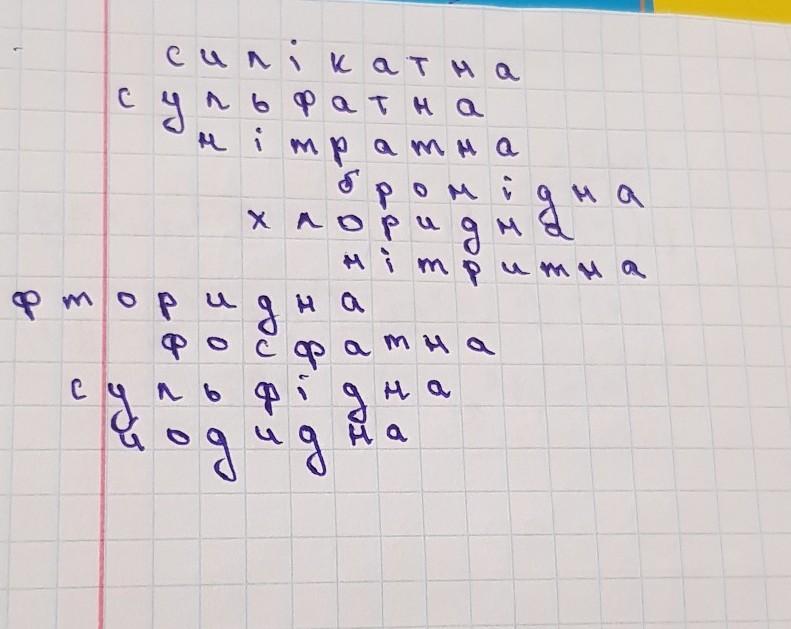 силікатна
сульфатна
нітратна
бромідна
хлоридна
нітритна
фторидна
фосфатна
сульфідна
йодидна